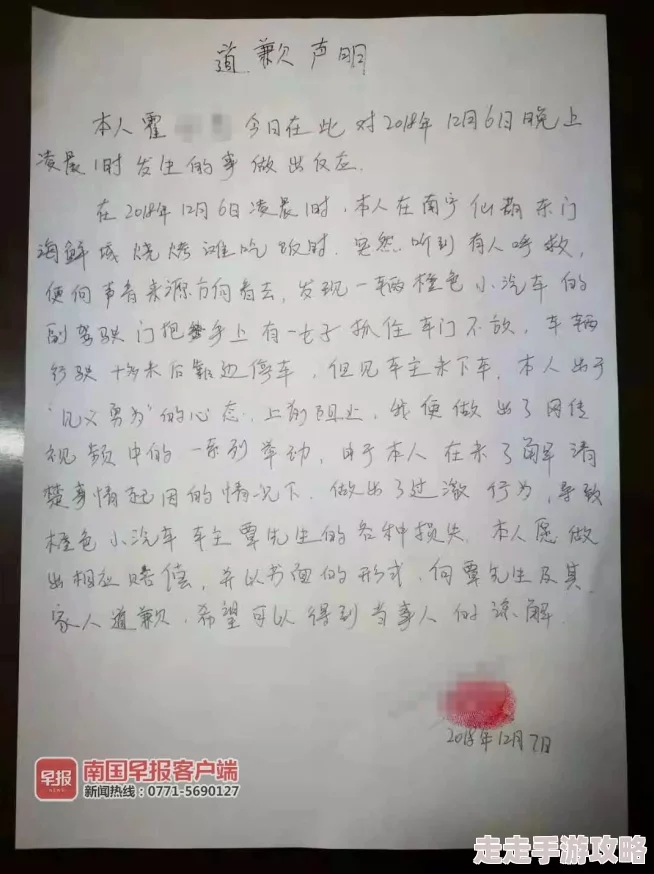 道歉声明
本人霍 今日在此对2018年12月6日晚上
凌晨1时发生的事做出反应.
在2018年12月6日凌晨1时,本人在南宁仙葫东门
海鲜城烧烤滩吃饭时.突然听到有人呼救,
便向声音来源方向看去,发现一辆橙色小汽车的
副驾驶门把手上有一女子抓住车门不放,车辆
行驶十多米后靠边停车,但见车主未下车,本人出于
“见义勇为”的心态,上前阻止,我便做出了网传
视频中的一系列举动,由于本人在未了解清
楚事情起因的情况下.做出了过激行为,导致
橙色小汽车车主覃先生的各种损失.本人愿做
出相应赔偿,并以书面的形式,向覃先生及其
家人道歉.希望可以得到当事人的谅解.
2018年12月7日
早报
NEWS
南国早报客户端
新闻热线:0771-5690127
走走手游攻略